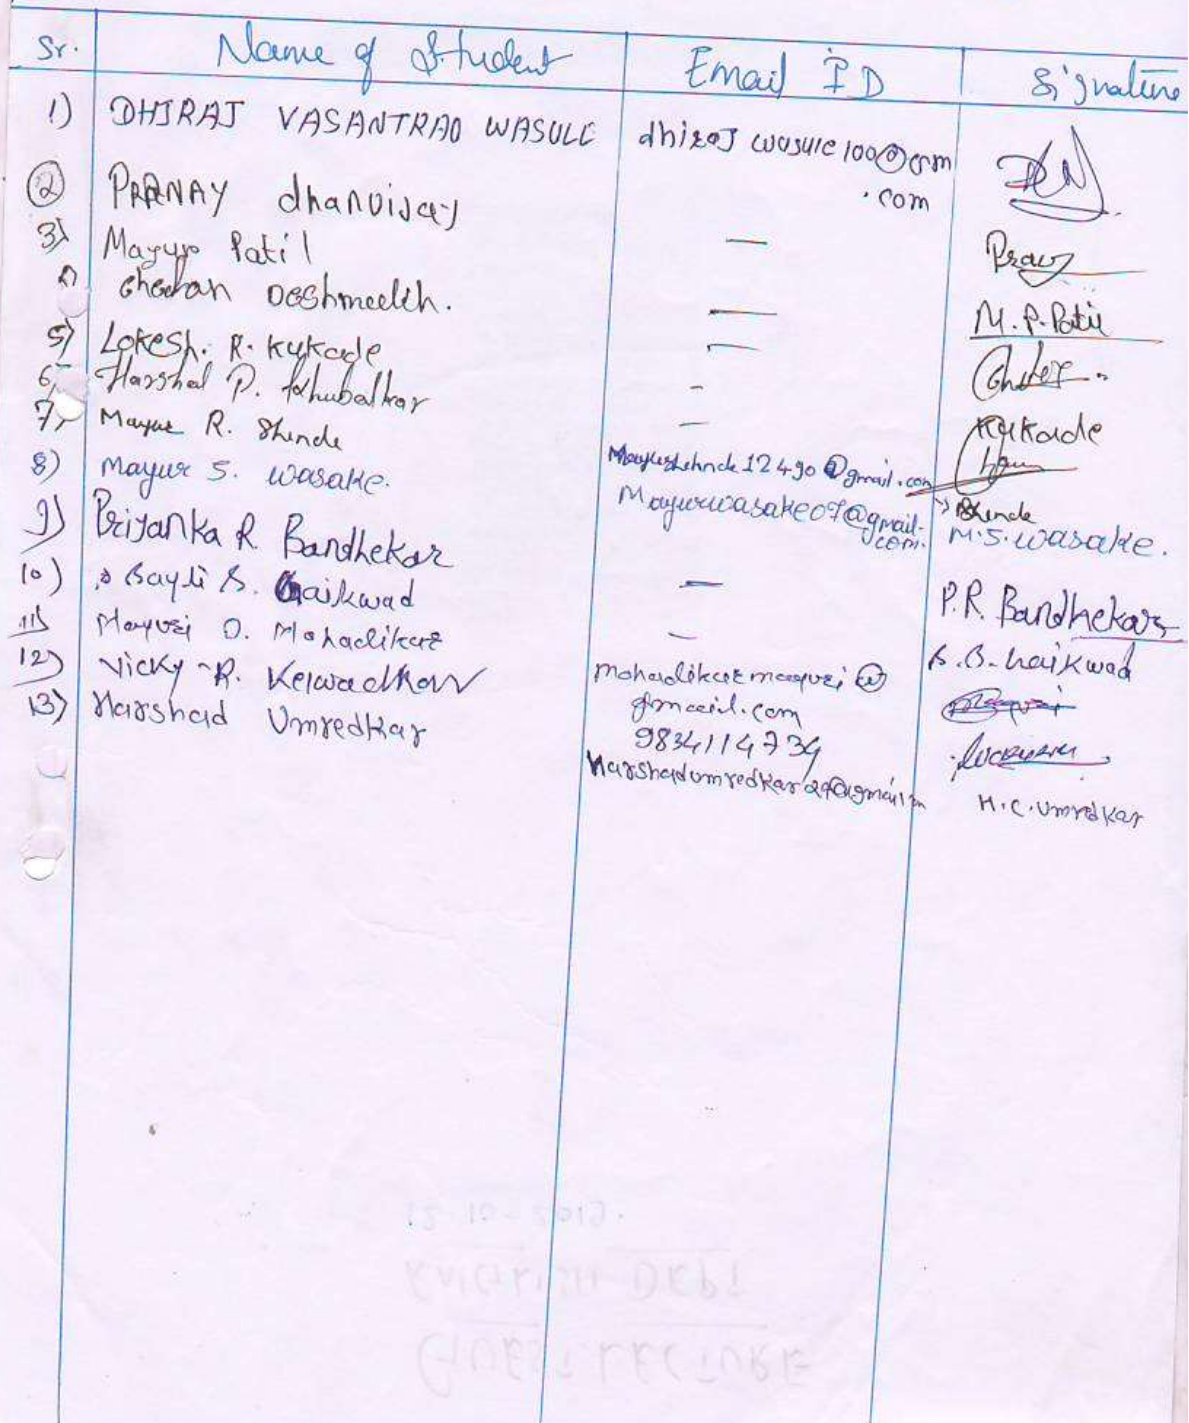 Sr. Name of Student Email ID Signature
1) DHIRAJ VASANTRAO WASULE dhiraj wasule100@
.com
2 PRANAY dhanvijay —
3) Mayur Patil — M.P.Patil
Chetan Deshmukh. —
5) Lokesh. R. Kukade - Kukade
6) Harshal P. Khubalkar —
7) Mayur R. Shinde @gmail.com Shinde
8) Mayur S. Wasake. Mayurwasake07@gmail.
com. M.S.Wasake.
9) Priyanka R. Bandhekar — P.R. Bandhekar
10) Sayli S. Gaikwad — S.S. Gaikwad
11) Mayuri D. Mahadikar mahadikarmayuri@
gmail.com
12) Vicky R. Kelwadkar 9834114734
13) Harshad Umredkar harshadumredkar29@gmail H.C.Umredkar
12-10-2019.
ENGLISH DEPT
GUEST LECTURE